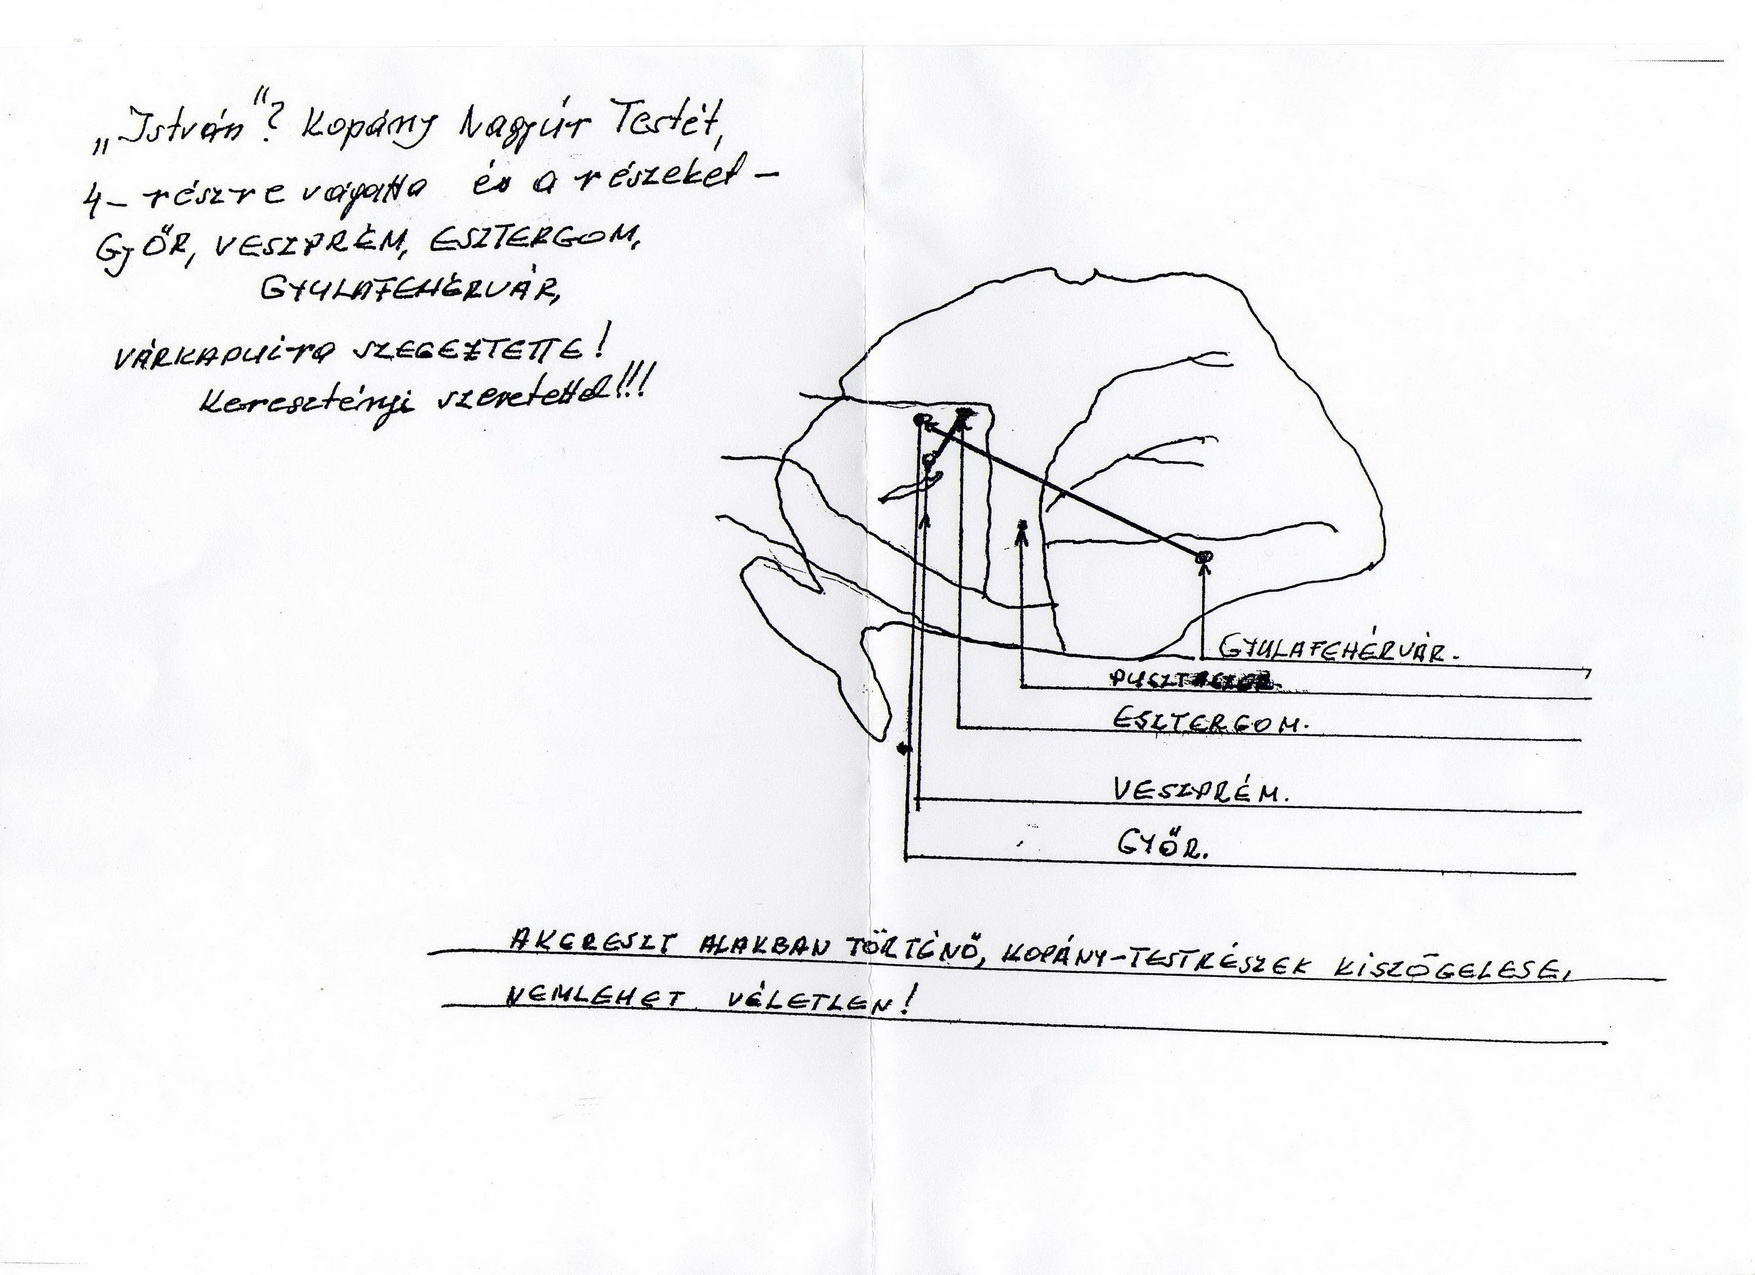 „István"? Kopány Nagyúr Testét,
4- részre vágatta és a részeket -
GyŐR, VESZPRÉM, ESZTERGOM,
GYULAFEHÉRVÁR,
VÁRKAPUira SZEGEZTETTE!
Keresztényi szeretettel!!!
GYULAFEHÉRVÁR.
ESZTERGOM.
VESZPRÉM.
GYŐR.
A KERESZT ALAKBAN TÖRTÉNŐ, KOPÁNY-TESTRÉSZEK KISZÖGELESE,
NEM LEHET VÉLETLEN!